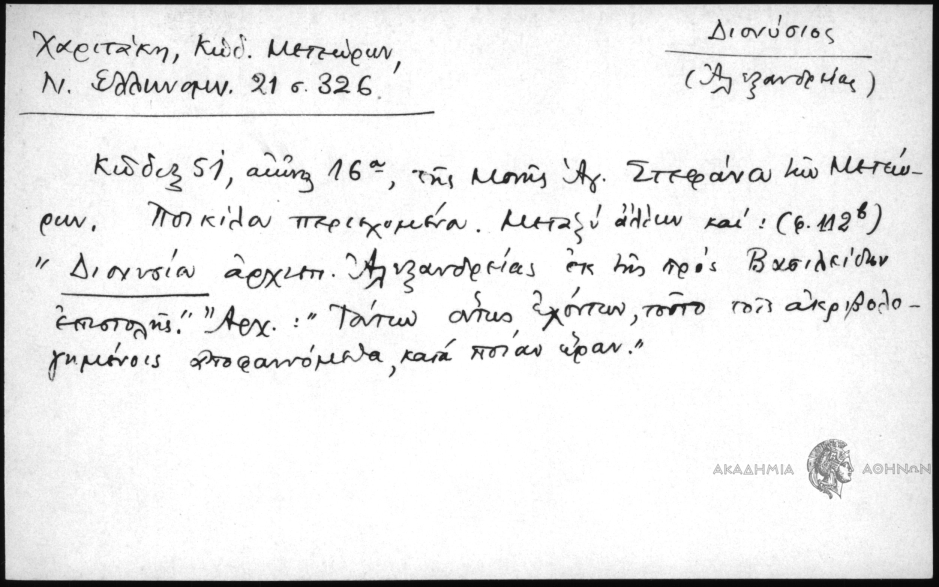 Διονύσιος
(Ἀλεξανδρείας)
Χαριτάκη, Κώδ. Μετεώρων,
Ν. Ἑλληνομν. 21 σ. 326.
Κῶδιξ 51, αἰῶνος 16ου, τῆς Μονῆς Ἁγ. Στεφάνου τῶν Μετεώ-
ρων. Ποικίλα περιεχομένα. Μεταξὺ ἄλλων καί: (φ. 112β)
"Διονυσίου ἀρχιεπ. Ἀλεξανδρείας ἐκ τῆς πρός Βασιλείδην
ἐπιστολῆς." Ἀρχ.: "Τούτων οὕτως ἐχόντων, τοῦτο τοῖς ἀκριβολο-
γημένοις ἀποφαινόμεθα, κατά ποίαν ὥραν."
ΑΚΑΔΗΜΙΑ ΑΘΗΝΩΝ